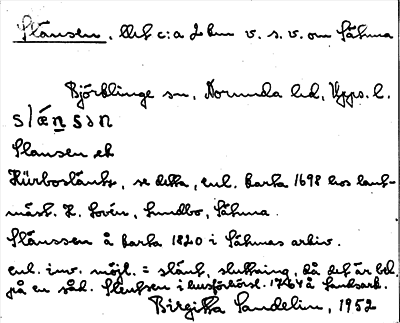 Slänsen, Ubt c:a 2 km v. s. v. om Sätuna
Björklinge sn, Norunda hd, Upps. l.
slǽnsən
Slansen ek
Kürboslänt, se detta, enl. karta 1698 hos lant-
mäst. H. Lovén, Lundbo, Sätuna.
Slänssen å karta 1820 i Sätunas arkiv.
enl. inv. möjl. = slänt, sluttning, då det är bel.
på en såd. Släntsen i husförhörsl. 1764 å Landsark.
Birgitta Sandelin, 1952